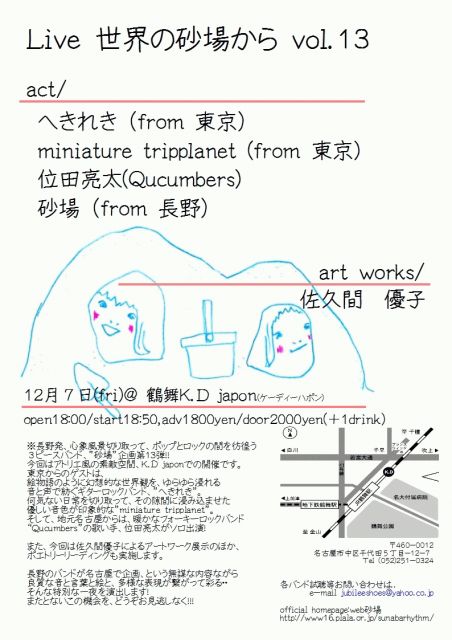 Live 世界の砂場から vol.13
act/
へきれき (from 東京)
miniature tripplanet (from 東京)
位田亮太(Qucumbers)
砂場 (from 長野)
art works/
佐久間 優子
12月7日(fri)@ 鶴舞K.D japon(ケーディーハポン)
open18:00/start18:50,adv1800yen/door2000yen(+1drink)
※長野発、心象風景切り取って、ポップとロックの間を彷徨う
3ピースバンド、"砂場"企画第13弾!!
今回はアトリエ風の素敵空間、K.D japonでの開催です。
東京からのゲストは、
絵物語のように幻想的な世界観を、ゆらゆら浸れる
音と声で紡ぐギターロックバンド、"へきれき"。
何気ない日常を切り取って、その隙間に浸み込ませた
優しい音色が印象的な"miniature tripplanet"。
そして、地元名古屋からは、暖かなフォーキーロックバンド
"Qucumbers"の歌い手、位田亮太がソロ出演!
また、今回は佐久間優子によるアートワーク展示のほか、
ポエトリーリーディングも実施します。
長野のバンドが名古屋で企画、という無謀な内容ながら
良質な音と言葉と絵と、多様な表現が繋がって彩る・・
そんな特別な一夜を演出します!
またとないこの機会を、どうぞお見逃しなく!!!
至 千種
白川
千早
吹上
若宮大通
K.D
上前津
地下鉄鶴舞駅
JR鶴舞駅
名大付属病院
鶴舞公園
至 金山
〒460-0012
名古屋市中区千代田5丁目12-7
Tel (052)251-0324
各バンド試聴等お問い合わせは、
e-mail jubileeshoes@yahoo.co.jp
official homepage'web砂場
http://www16.plala.or.jp/sunabarhythm/